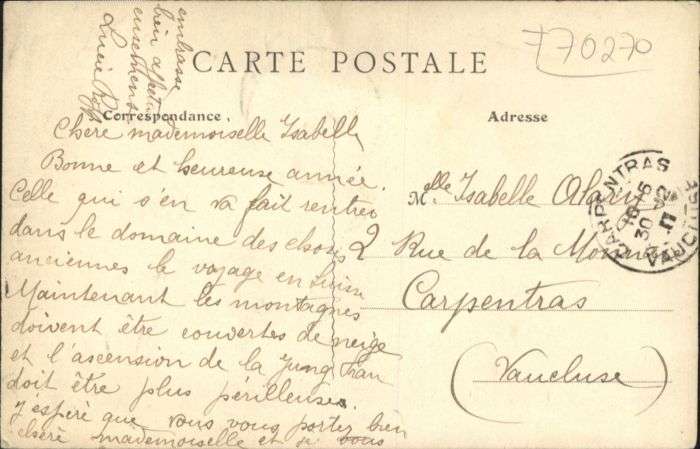 CARTE POSTALE
Correspondance.
Adresse
Chère mademoiselle Isabelle
Bonne et heureuse année.
Celle qui s'en va fait rentrer
dans le domaine des choses
anciennes le voyage en Suisse
Maintenant les montagnes
doivent être couvertes de neige
et l'ascension de la Jung Frau
doit être plus périlleuse.
J'espère que vous vous portez bien
chère mademoiselle et je vous
embrasse
bien affectu
eusement
Lucie
Melle Isabelle
2 Rue de la
Carpentras
(Vaucluse)
770270
CARPENTRAS
VAUCLUSE